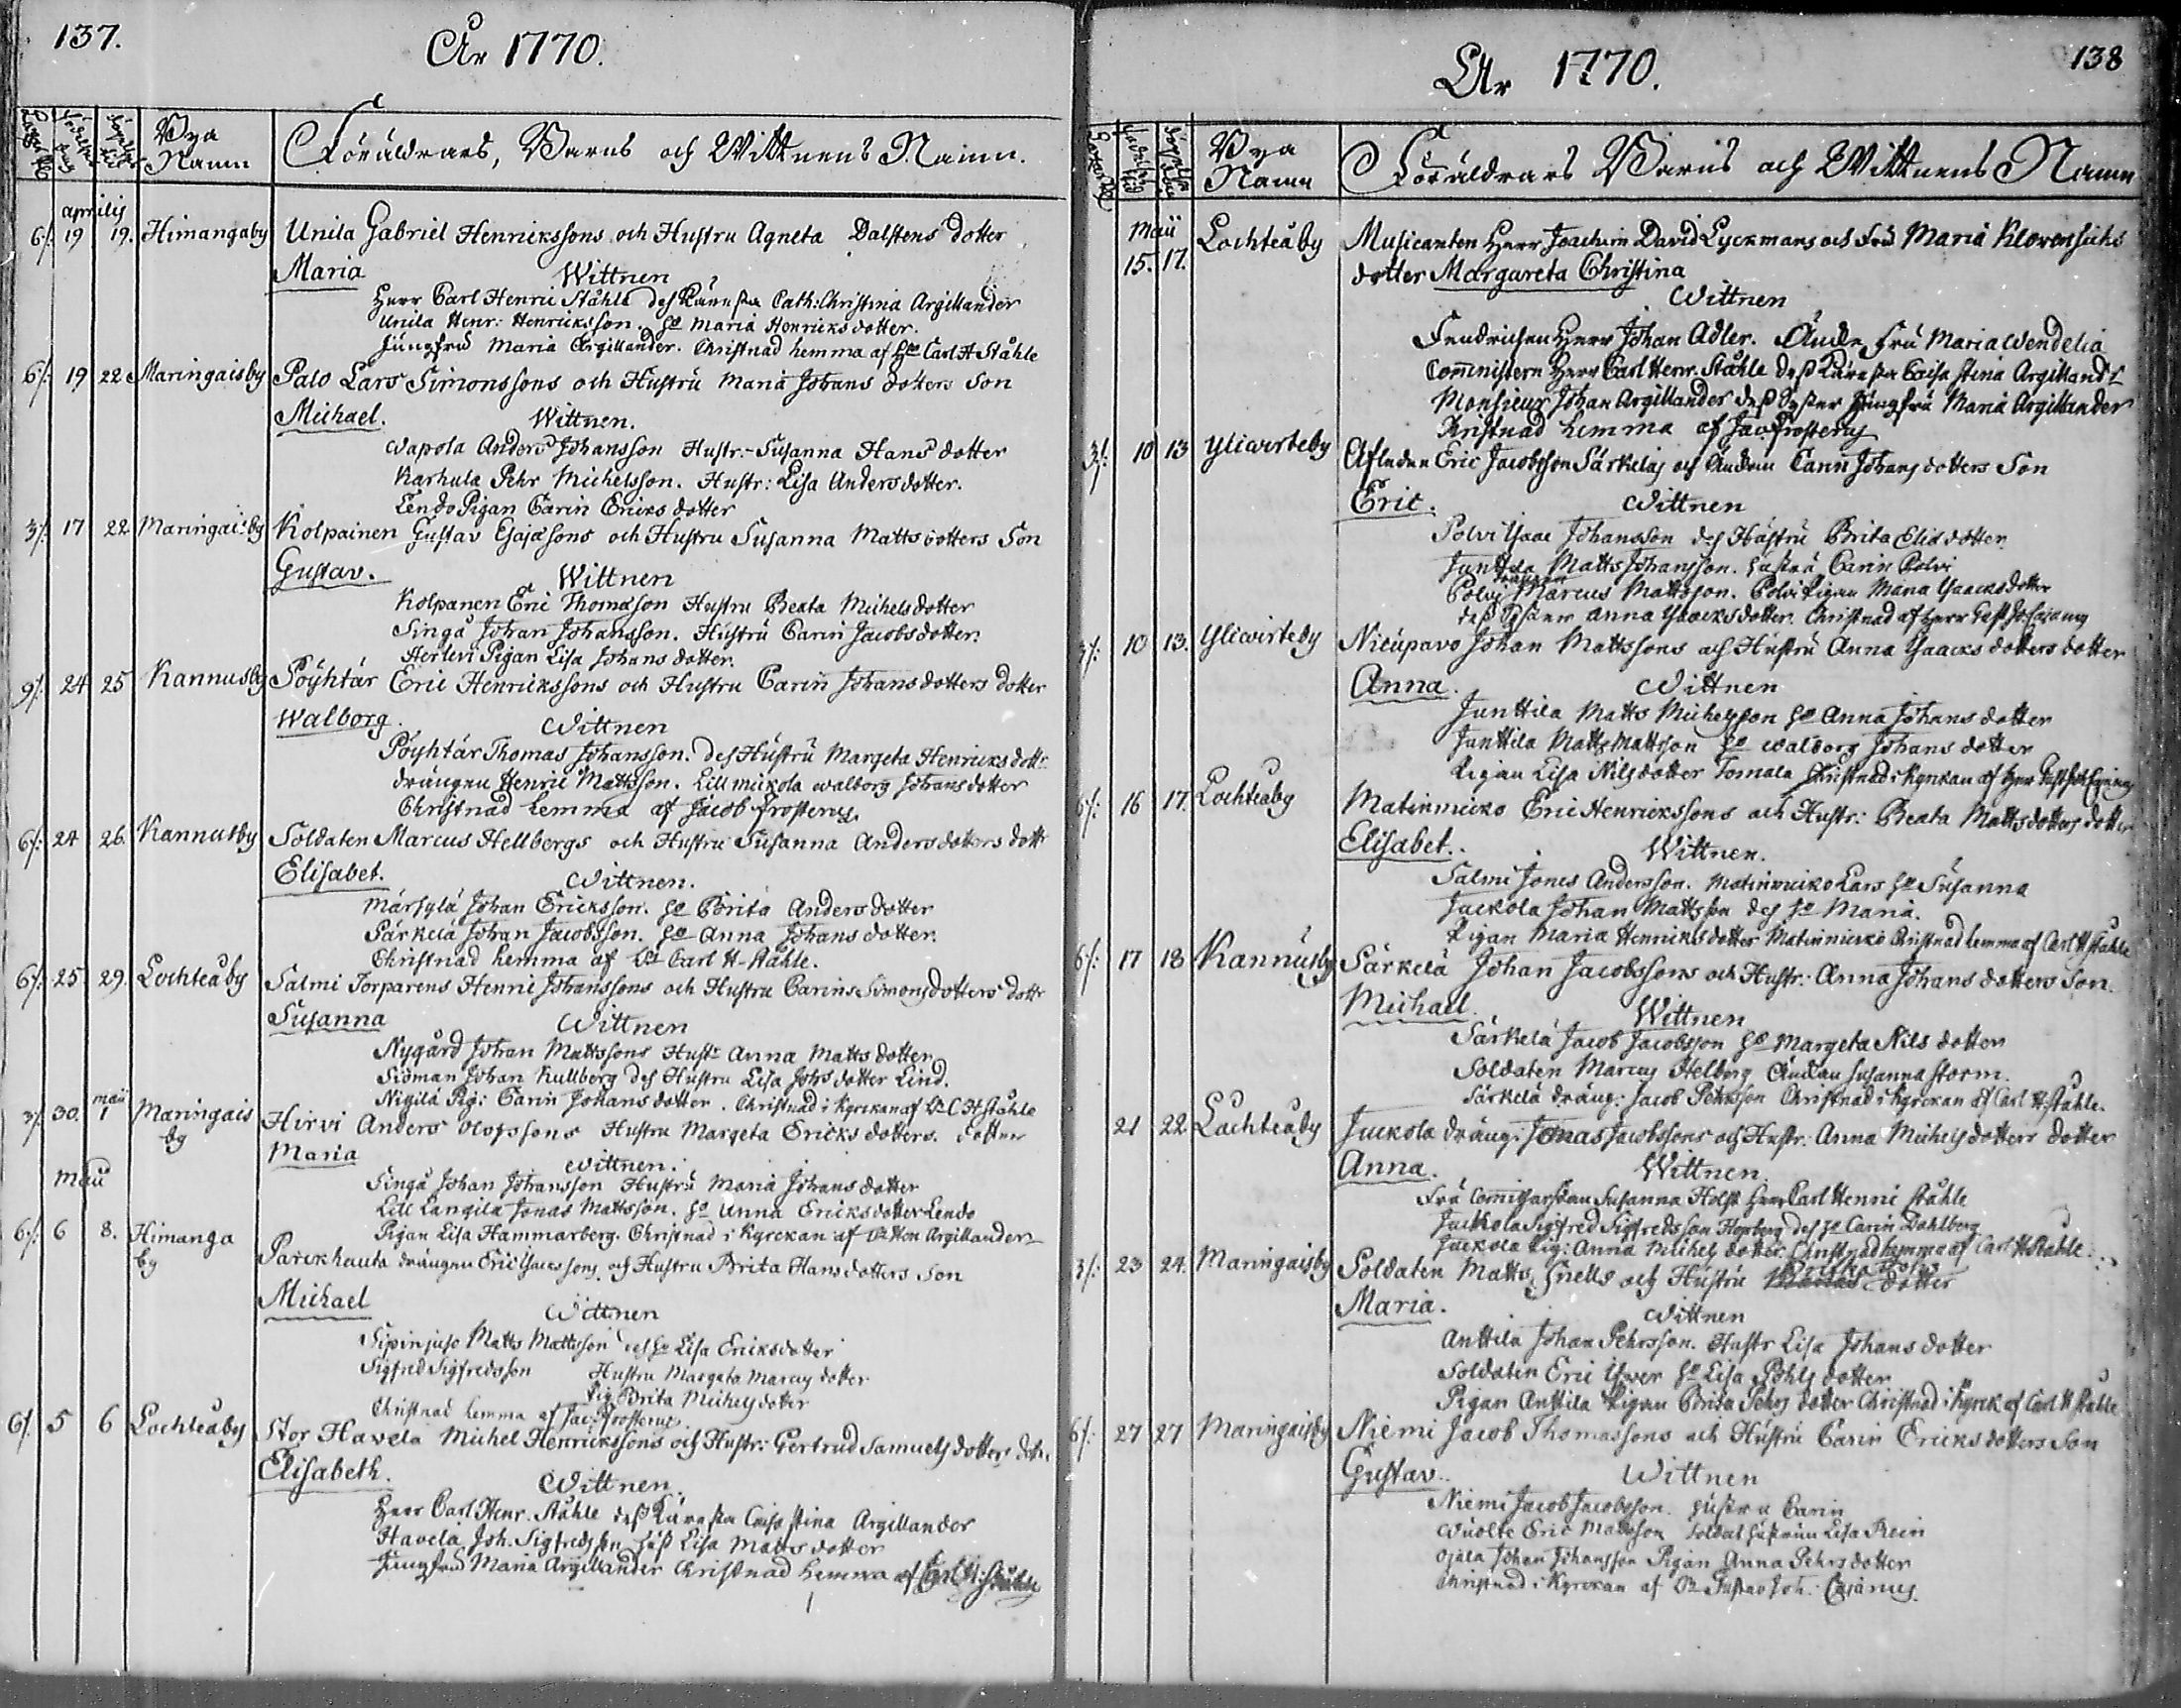 137.
År 1770.
Bya Namn
Föräldrars, Barns och Wittnens Namn.
aprilis
6/. 19 19. Himangaby Unila Gabriel Henrikssons och Hustru Agneta Dalstens dotter
Maria Wittnen
Herr Carl Henric Ståhle des Käresta Cath: Christina Argillander
Unila Henr: Henricksson. Ho Maria Henricksdotter.
Jungfru Maria Argillander. Christnad hemma af Hrr Carl H Ståhle
6/. 19 22 Maringaisby Palo Lars Simonssons och Hustru Maria Johans dotters Son
Michael. Wittnen.
Wapola Anders Johansson Hustr. Susanna Hans dotter
Karhula Pehr Michelsson. Hustr: Lisa Andersdotter.
Lendo Pigan Carin Ericks dotter
3/. 17 22 Maringaisby Kolpainen Gustav Esajæsons och Hustru Susanna Mattsdotters Son
Gustav. Wittnen
Kolpanen Eric Thomæson Hustru Beata Michelsdotter
Singå Johan Johansson. Hustru Carin Jacobsdotter.
Herlevi Pigan Lisa Johansdotter.
9/. 24 25 Kannusby Pöyhtär Eric Henrickssons och Hustru Carin Johansdotters dotter
Walborg. Wittnen
Pöyhtär Thomas Johansson. des Hustru Margeta Henricksdottr
drängen Henric Mattsson. Lill mickola walborg Johansdotter
Christnad hemma af Jacob Frosterus.
6/: 24 26. Kannusby Soldaten Marcus Hellbergs och Hustru Susanna Andersdotters dottr
Elisabet. Wittnen.
Märsylä Johan Ericksson. Ho Brita Andersdotter
Särkelä Johan Jacobsson. Ho Anna Johansdotter.
Christnad hemma af Hr Carl H Ståhle.
6/: 25 29. Lochteåby Salmi Torparens Henric Johanssons och Hustru Carins Simonsdotters dottr
Susanna Wittnen
Nygård Johan Mattssons Hustr Anna Mattsdotter
Sidman Johan Kullberg des Hustru Lisa Johsdotter Lind.
Nigilä Pig: Carin Johansdotter. Christnad i Kyrckan af Hr C H Ståhle
3/. 30. maii 1 Maringais by Hirvi Anders Olofssons Hustru Margeta Ericks dotters. dotter
Maria Wittnen.
Singå Johan Johansson Hustru Maria Johansdotter
Lill Langila Jonas Mattsson. Ho Anna Ericksdotter Lendo
Pigan Lisa Hammarberg. Christnad i Kyrckan af Argillander
Maii
6/: 6 8. Himanga by Parckhauta drängen Eric Isacssons och Hustru Brita Hansdotters Son
Michael Wittnen
Sipinjuso Matts Mattsson des Ho Lisa Ericksdotter
Sigfrid Sigfredsson Hustru Margeta Marcus dotter
Pig Brita Michels dotter
Christnad hemma af Jac: Frosterus.
6/. 5 6 Lochteåby Stor Havela Michel Henrickssons och Hustr: Gertrud Samuelsdotters dotr.
Elisabeth. Wittnen.
Herr Carl Henr. Ståhle dess Käresta Cajsa Stina Argillander
Havela Joh. Sigfredsson Hust Lisa Matts dotter
Jungfru Maria Argillander Christnad hemma af Carl H: Ståhle
138
År 1770.
Bya Namn
Föräldrars Barns och Wittnens Namn
Maii
15. 17. Lochteåby Musicanten Herr Joachim David Lyckmans och Fru Maria
dotter Margareta Christina
Wittnen
Fendrichen Herr Johan Adler. Fru Maria Wendelia
Comministern Herr Carl Henr. Ståhle dess Käresta Caisa Stina Argilland
Monsieur Johan Argillander dess Syster Jungfru Maria Argillander
Christnad hemma af Jac: Frosterus
3/: 10 13 Yliwirteby Afledne Eric Jacobsson Särkeläs och Änckan Carin Johansdotters Son
Eric. Wittnen
Polvi Isaac Johansson des Hustru Brita Elisdotter.
Junttila Matts Johansson. Hustru Carin Polvi
drängen
Polvi Marcus Mattsson. Polvi Pigan Maria Isaacksdotter
dess Syster Anna Isaacksdotter. Christnad af Herr
3/: 10 13. Yliwirteby Nicupavo Johan Mattssons och Hustru Anna Isaacksdotters dotter
Anna. Wittnen
Junttila Matts Michelsson Ho Anna Johans dotter
Junttila Matts Mattsson Ho Walborg Johans dotter
Pigan Lisa Nilsdotter Tomala Christnad i Kyrckan af Herr
6/: 16 17. Lochteåby Matinmicko Eric Henrickssons och Hustr: Beata Mattsdotters dotter
Elisabet. Wittnen.
Salmi Jonas Andersson. Matinmicko Lars Ho Susanna
Juckola Johan Mattsson des Ho Maria.
Pigan Maria Henricksdotter Matinmicko Christnad hemma af Carl H Ståhle
6/: 17 18 Kannusby Särkelä Johan Jacobssons och Hustr: Anna Johansdotters Son.
Michael. Wittnen
Särkelä Jacob Jacobsson Ho Margeta Nils dotter
Soldaten Marcus Helberg Susanna Storm.
Särkelä dräng: Jacob Pehrsson Christnad i Kyrckan af Carl H Ståhle.
21 22 Lochteåby Juckola dräng: Jonas Jacobssons och Hustr: Anna Michelsdotters dotter
Anna. Wittnen
Fru Susanna Holst Herr Carl Henric Ståhle
Juckola Sigfred Sigfredsson des Ho Carin Dahlberg
Juckola Pig: Anna Michels dotter. Christnad hemma af Carl H Ståhle
3/: 23 24. Maringaisby Soldaten Matts Snells och Hustru dotter
Maria. Wittnen
Anttila Johan Pehrsson. Hustr Lisa Johans dotter
Soldaten Eric Ho Lisa Påhls dotter
Pigan Anttila Pigan Brita Pehrs dotter Christnad i Kyrck af Carl H Ståhle
6/: 27 27 Maringaisby Niemi Jacob Thomassons och Hustru Carin Ericks dotters Son
Gustav. Wittnen
Niemi Jacob Jacobsson. Hustru Carin
Wuolte Eric Mattsson Soldat hustrun Lisa
Ojala Johan Johansson Pigan Anna Pehrsdotter
Christnad i Kyrckan af Hr Gustav Joh. Cajanus.